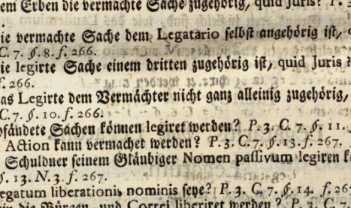 em Erben die vermachte Sache zugehörig, quid Juris? P. 3.
ie vermachte Sache dem Legatario selbst angehörig ist,
C. 7. §. 8. f. 266.
ie legirte Sache einem dritten zugehörig ist, quid Juris?
f. 266.
as Legirte dem Vermächter nicht ganz alleinig zugehörig,
C. 7. §. 10. f. 266.
pfändete Sachen können legiret werden? P. 3. C. 7. §. 11.
Action kann vermachet werden? P. 3. C. 7. §. 13. f. 267.
Schuldner seinem Gläubiger Nomen passivum legiren k
§. 13. N. 3. f. 267.
egatum liberationis nominis seye? P. 3. C. 7. §. 14. f. 26
die Bürgen, und Correi liberiret werden?